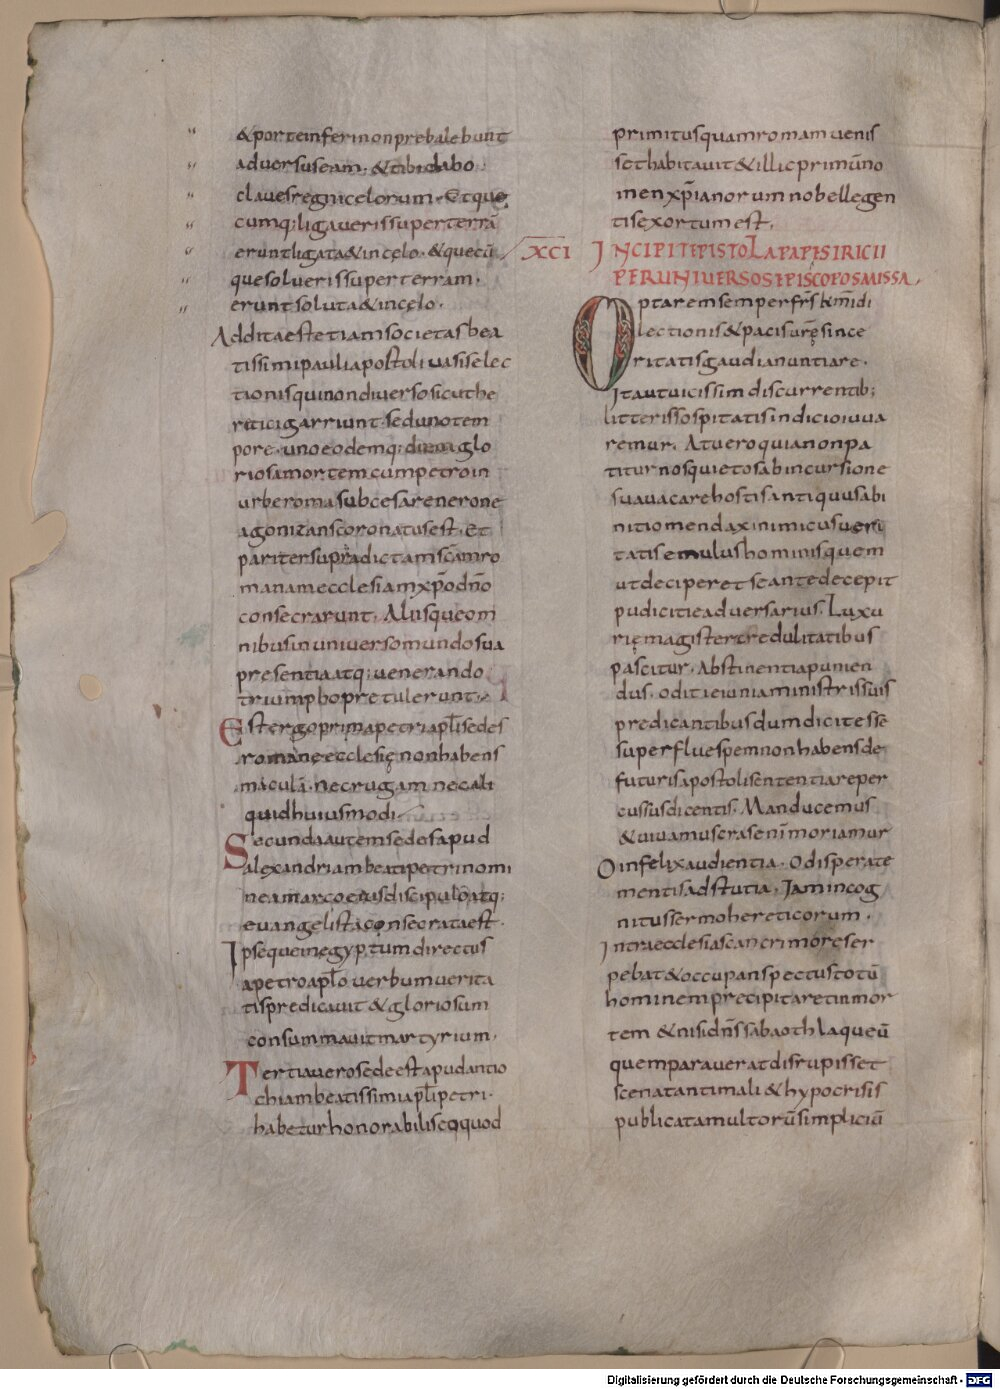 & porte inferi non prebalebunt
adversus eam · & tibi dabo
claves regni celorum · Et que
cumq; ligaveris super terrā
erunt ligata & in celo · & quecū
que solueris super terram ·
erunt soluta & in celo ·
Addita est etiam societas bea
tissimi pauli apostoli vasis elec
tionis qui non diverso sicut he
retici garriunt · sed uno tem
pore · uno eodemq; die · glo
riosa mortem cum petro in
urbe roma sub cesare nerone
agonizans coronatus est · Et
pariter supradictam scām ro
manam ecclesiam xpō dnō
consecrarunt · Aliisque om
nibus in universo mundo sua
presentia atq; venerando
triumpho pretulerunt ·
Est ergo prima petri apłi sedes
romane ecclesię non habens
maculā · nec rugam nec ali
quid huiusmodi
Secunda autem sedes apud
alexandriam beati petri nomi
ne a marco eius discipulo atq;
evangelista consecrata est ·
Ipseque in egyptum directus
a petro apło verbum verita
tis predicavit & gloriosum
consummavit martyrium ·
Tertia vero sede est apud antio
chiam beatissimi apłi petri ·
habetur honorabilis eo quod
primitus quam romam venis
set habitavit & illic primū no
men xpīanorum nobelle gen
tis exortum est ·
XCI INCIPIT EPISTOLA PAPAE SIRICII
PER UNIVERSOS EPISCOPOS MISSA ·
Optarem semper frs̄ kmīdi
lectionis & pacis urę̄ since
ritatis gaudia nuntiare ·
Ita ut vicissim discurrentib;
litteris sospitatis indicio iuua
remur · At vero quia non pa
titur nos quietos ab incursione
sua vacare hostis antiquus abi
nitio mendax inimicus veri
tatis emulus hominis quem
ut deciperet se ante decepit
pudicitie adversarius · Luxu
rię magister credulitatibus
pascitur · Abstinentia punien
dus · odit ieiunia ministris suis
predicantibus dum dicit esse
superflue spem non habens de
futuris apostoli sententia reper
cussus dicentis · Manducemus
& vivamus cras enī moriamur
O infelix audientia · O disperate
mentis adstutia · Iam incog
nitus sermo hereticorum ·
Intra ecclesias cancri more ser
pebat & occupans pectus totū
hominem precipitaret in mor
tem & nisi dns̄ sabaoth laqueū
quem paraverat disrupisset
scena tanti mali & hypocrisis
publicata multorū simpliciū
Digitalisierung gefördert durch die Deutsche Forschungsgemeinschaft - DFG